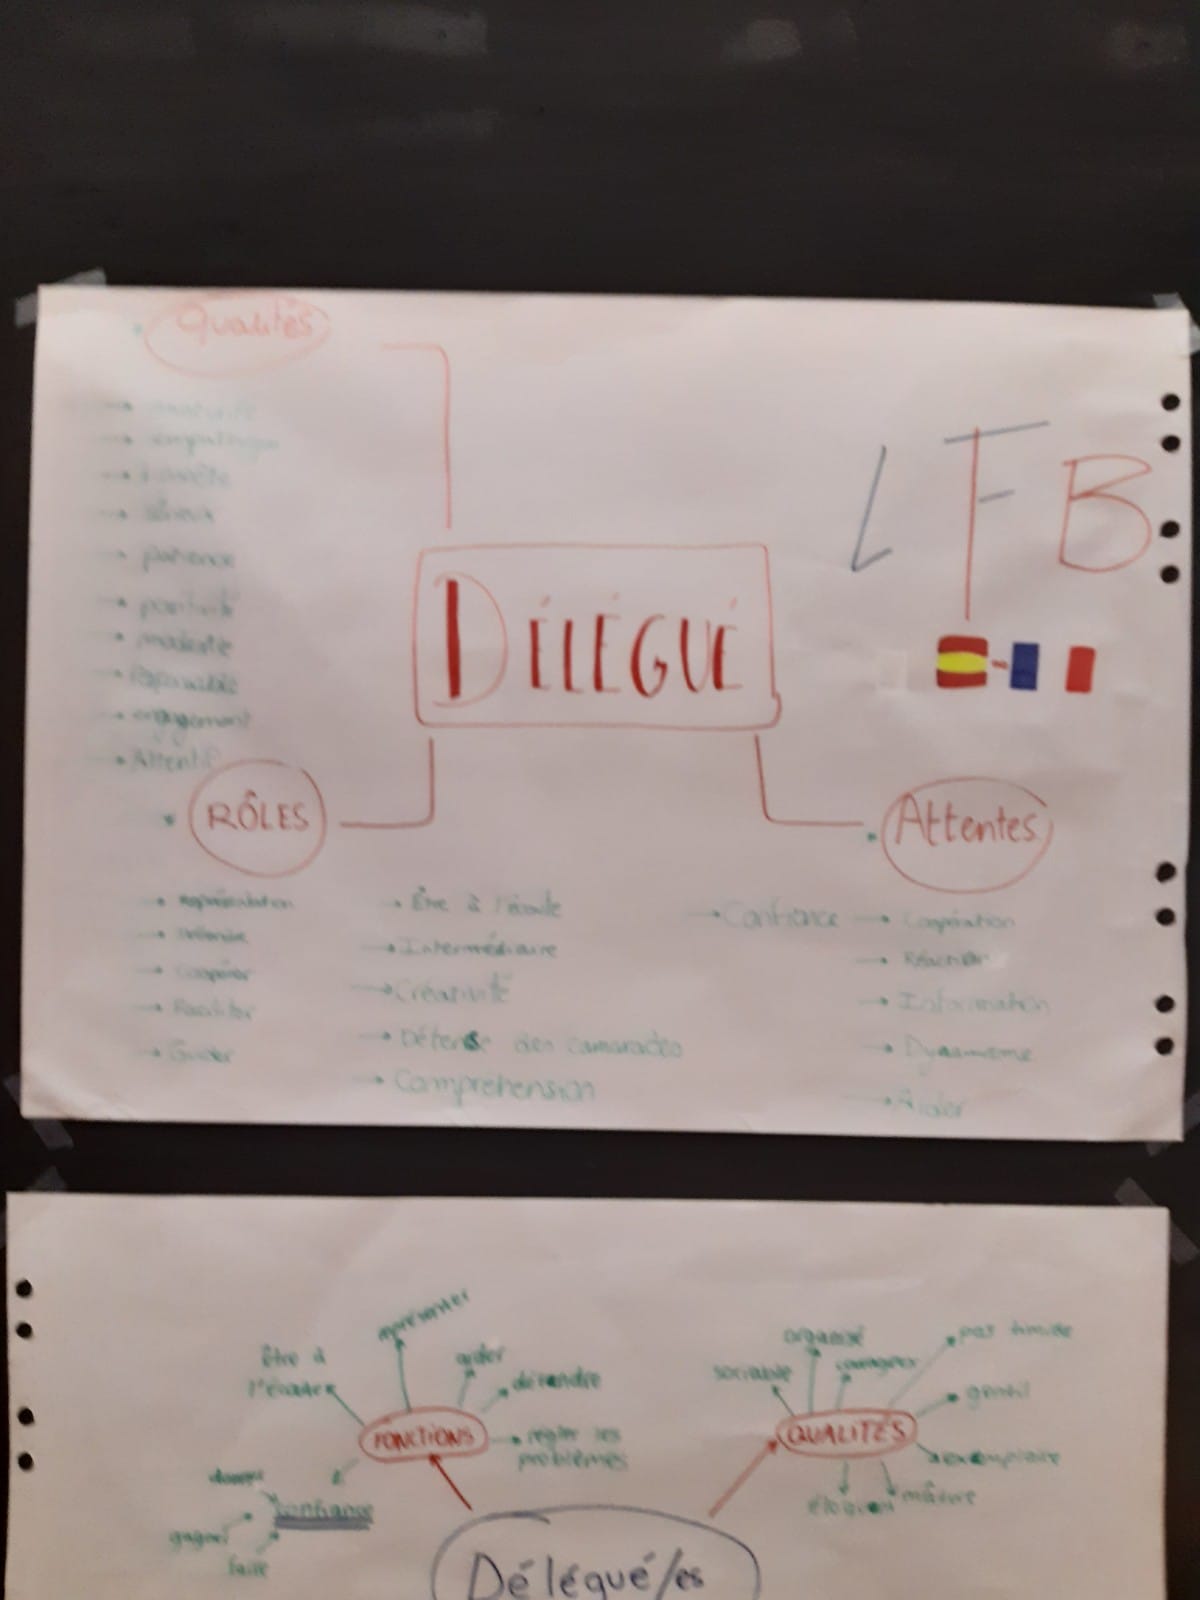 Qualités
→ maturité
→ empathique
→ honnête
→ sérieux
→ patience
→ positivité
→ modestie
→ Responsable
→ engagement
→ Attentif
LFB
DÉLÉGUÉ
RÔLES
→ Représentation
→ Défense
→ Coopérer
→ Faciliter
→ Guider
→ Être à l'écoute
→ Intermédiaire
→ Créativité
→ Défense des camarades
→ Compréhension
Attentes
→ Confiance → Coopération
→ Réaction
→ Information
→ Dynamisme
→ Aider
être à
l'écoute
représenter
aider
défendre
régler les
problèmes
FONCTIONS
donner
confiance
gagner
faire
sociable
organisé
courageux
pas timide
gentil
QUALITÉS
exemplaire
éloquent
mâture
Délégué/es